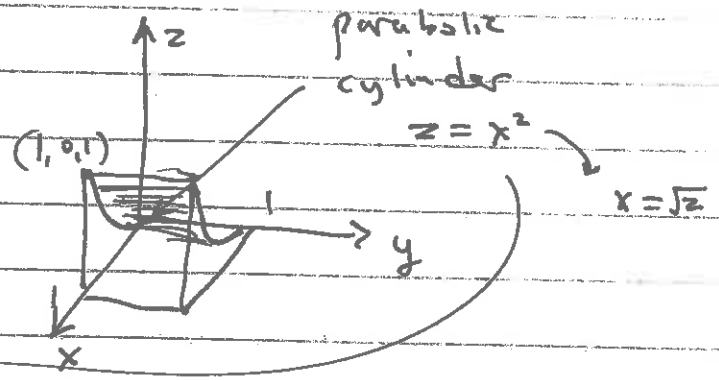 z
parabolic
cylinder
z = x²
(1,0,1)
x = √z
1
y
x